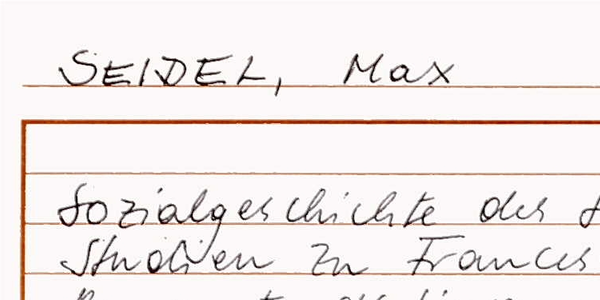 SEIDEL, Max
Sozialgeschichte des
Studien zu Frances